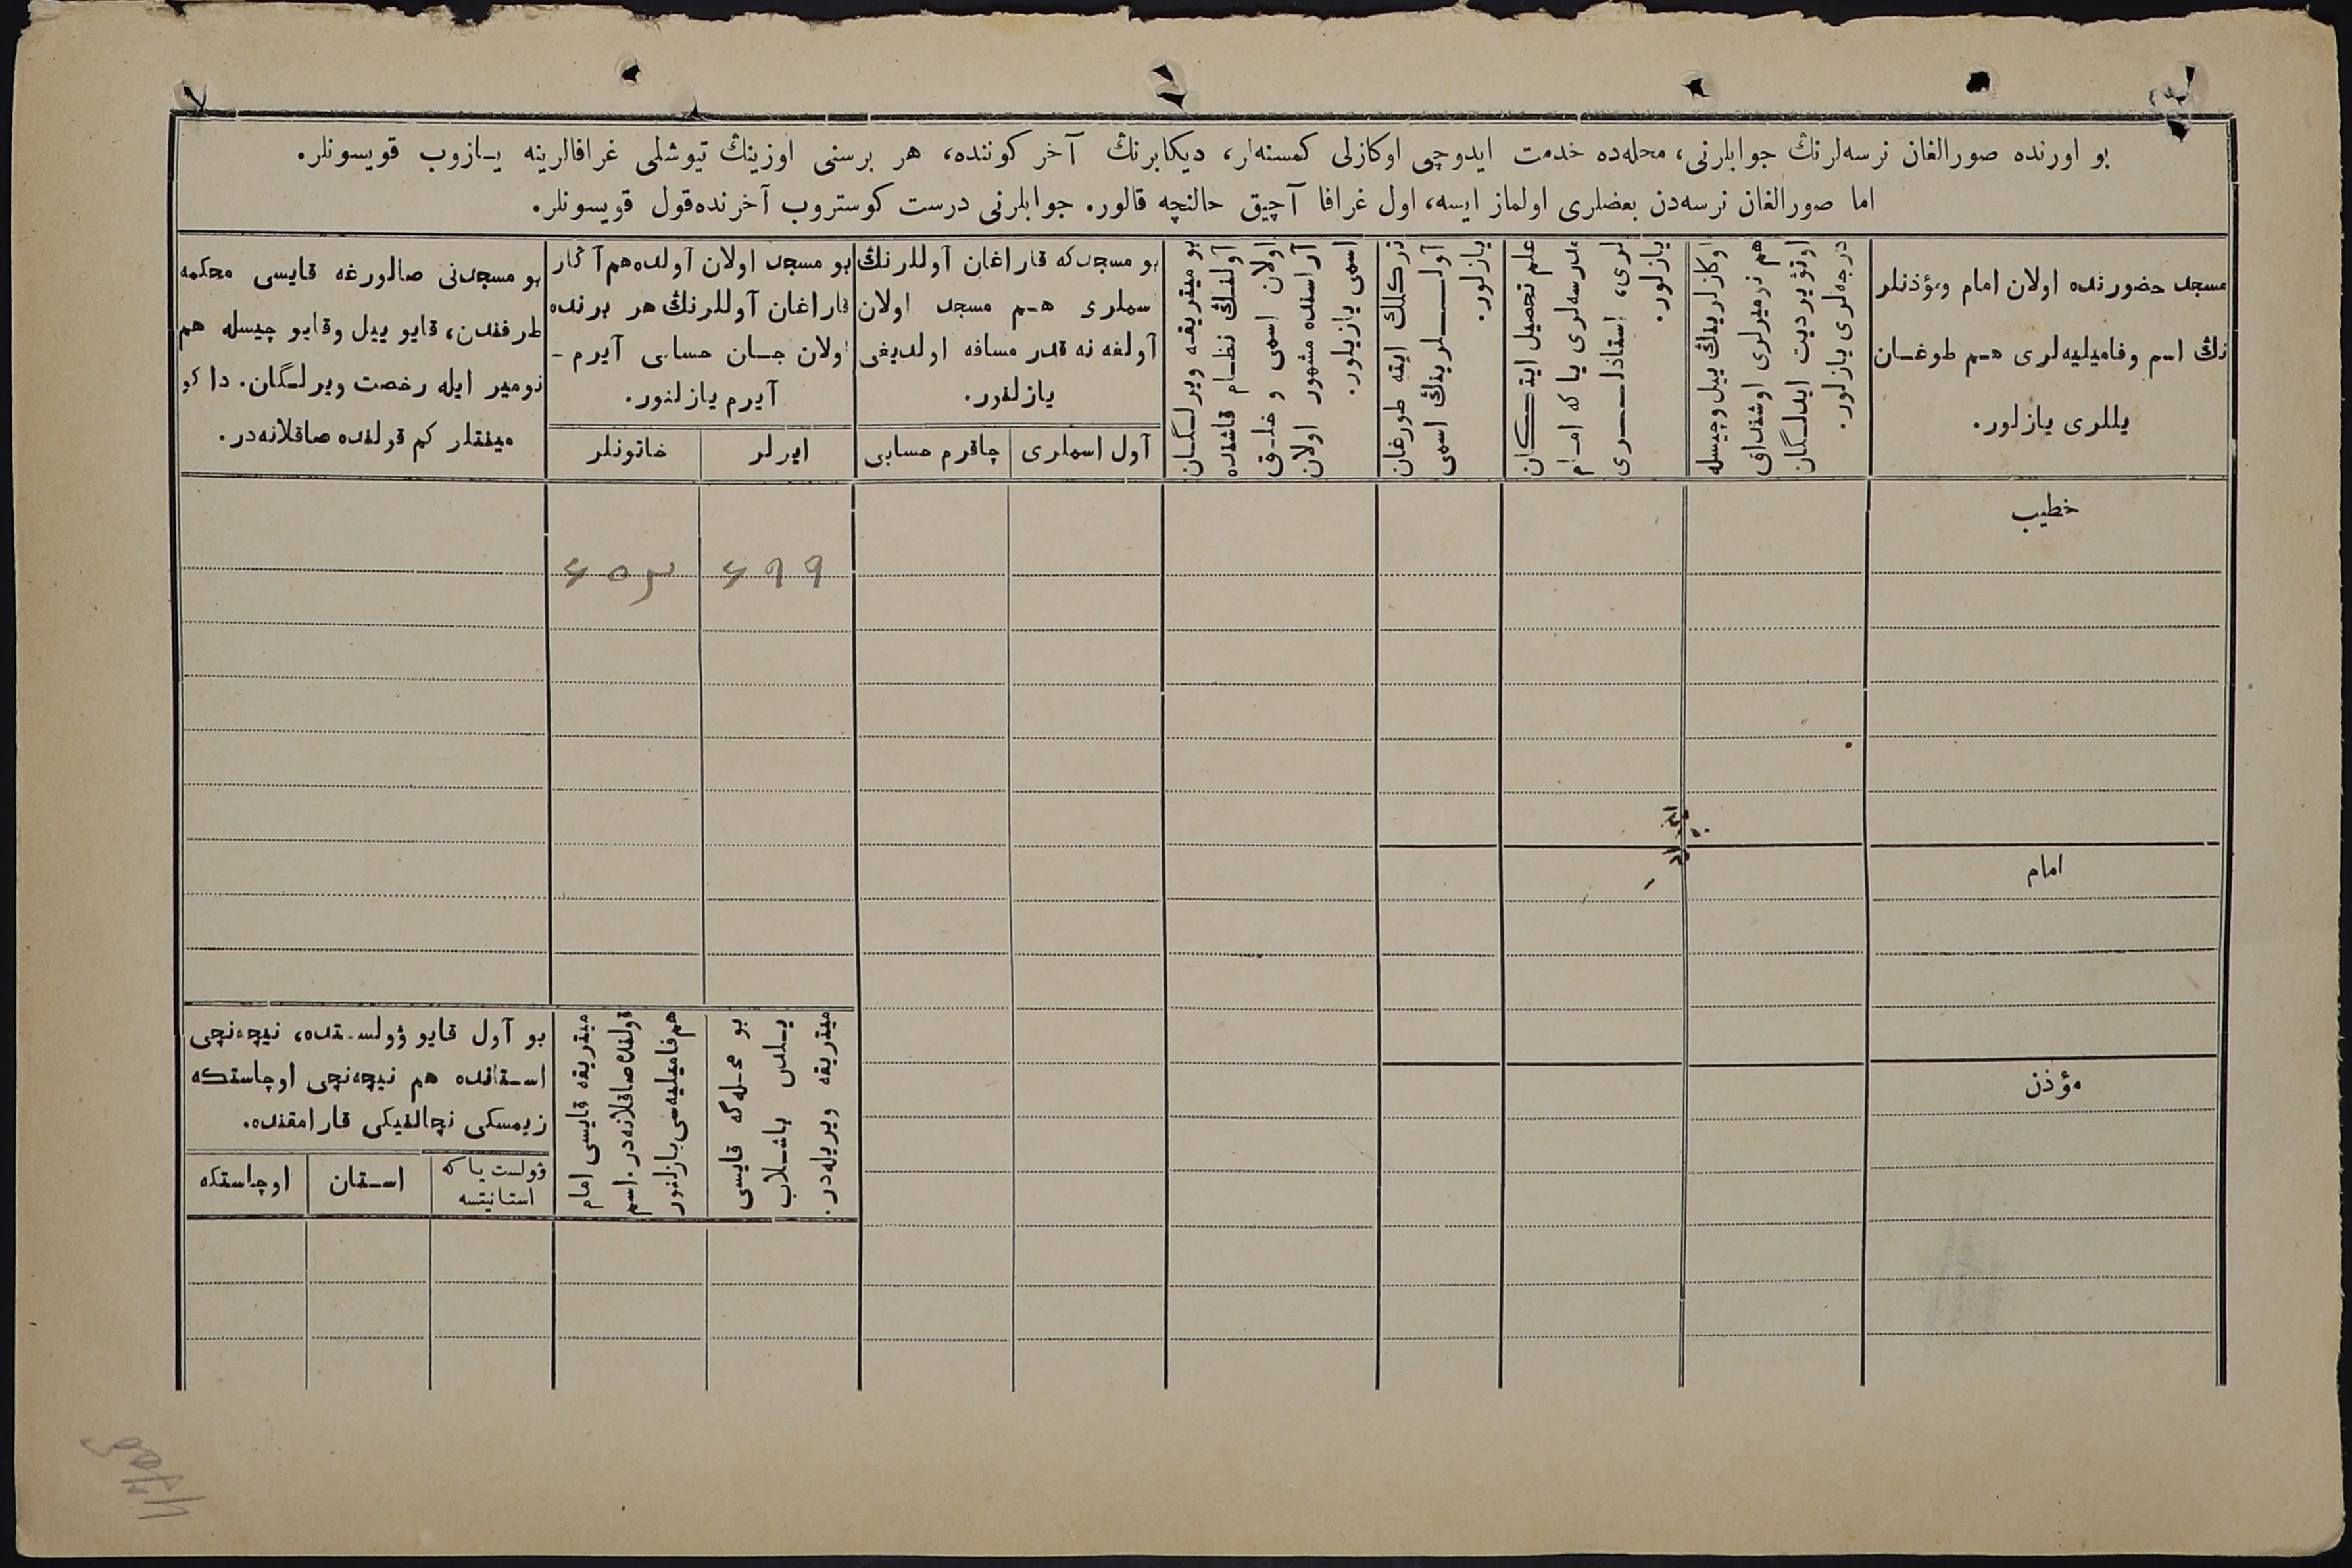 بو اورنده صورالغان نرسه‌لرنڭ جوابلرنی، محله‌ده خدمت ایدوچی اوكازلی كمسنه‌لر، دیكابرنڭ آخر كوننده، هر برسنی اوزینڭ تیوشلی غرافالرینه یازوب قویسونلر.
اما صورالغان نرسه‌دن بعضلری اولماز ایسه، اول غرافا آچیق حالنچه قالور. جوابلرنی درست كوستروب آخرنده قول قویسونلر.
مسجد حضورنده اولان امام ومؤذنلر
نڭ اسم وفامیلیه‌لری هم طوغان
یللری یازلور.
اوكازلرینڭ ییل وچیسله
هم نومیرلری اوشنداق
اوتۋیردیت ایدلگان
درجه‌لری یازلور.
علم تحصیل ایتكان
مدرسه‌لری یا كه امام
لری، استاذلری
یازلور.
تركلك ایته طورغان
آوللرینڭ اسمی
یازلور.
بو میتریقه ویرلگان
آولنڭ نظام قاشنده
اولان اسمی و خلق
آراسنده مشهور اولان
اسمی یازیلور.
بو مسجدكه قاراغان آوللرنڭ
اسملری هم مسجد اولان
آولغه نه قدر مسافه اولدیغی
یازلنور.
آول اسملری
چاقرم حسابی
بو مسجد اولان آولده هم آڭار
قاراغان آوللرنڭ هر برنده
اولان جان حسابی آیرم -
آیرم یازلنور.
ایرلر
خاتونلر
بو مسجدنی صالورغه قایسی محكمه
طرفندن، قایو ییل وقایو چیسله هم
نومیر ایله رخصت ویرلگان. دا كو
مینتلر كم قولنده صاقلانه‌در.
خطیب
۶۹۹
۶۵۳
امام
مؤذن
میتریقه ویریله‌در.
یلدن باشلاب
بو محله‌گه قایسی
میتریقه قایسی امام
قولنده صاقلانه‌در. اسم
هم فامیلیه‌سی یازلنور
بو آول قایو ۋولستده، نیچه‌نچی
استانده هم نیچه‌نچی اوچاستكه
زیمسكی نچالنیكی قارامقنده.
ۋولست یا كه
استانیتسه
استان
اوچاستكه